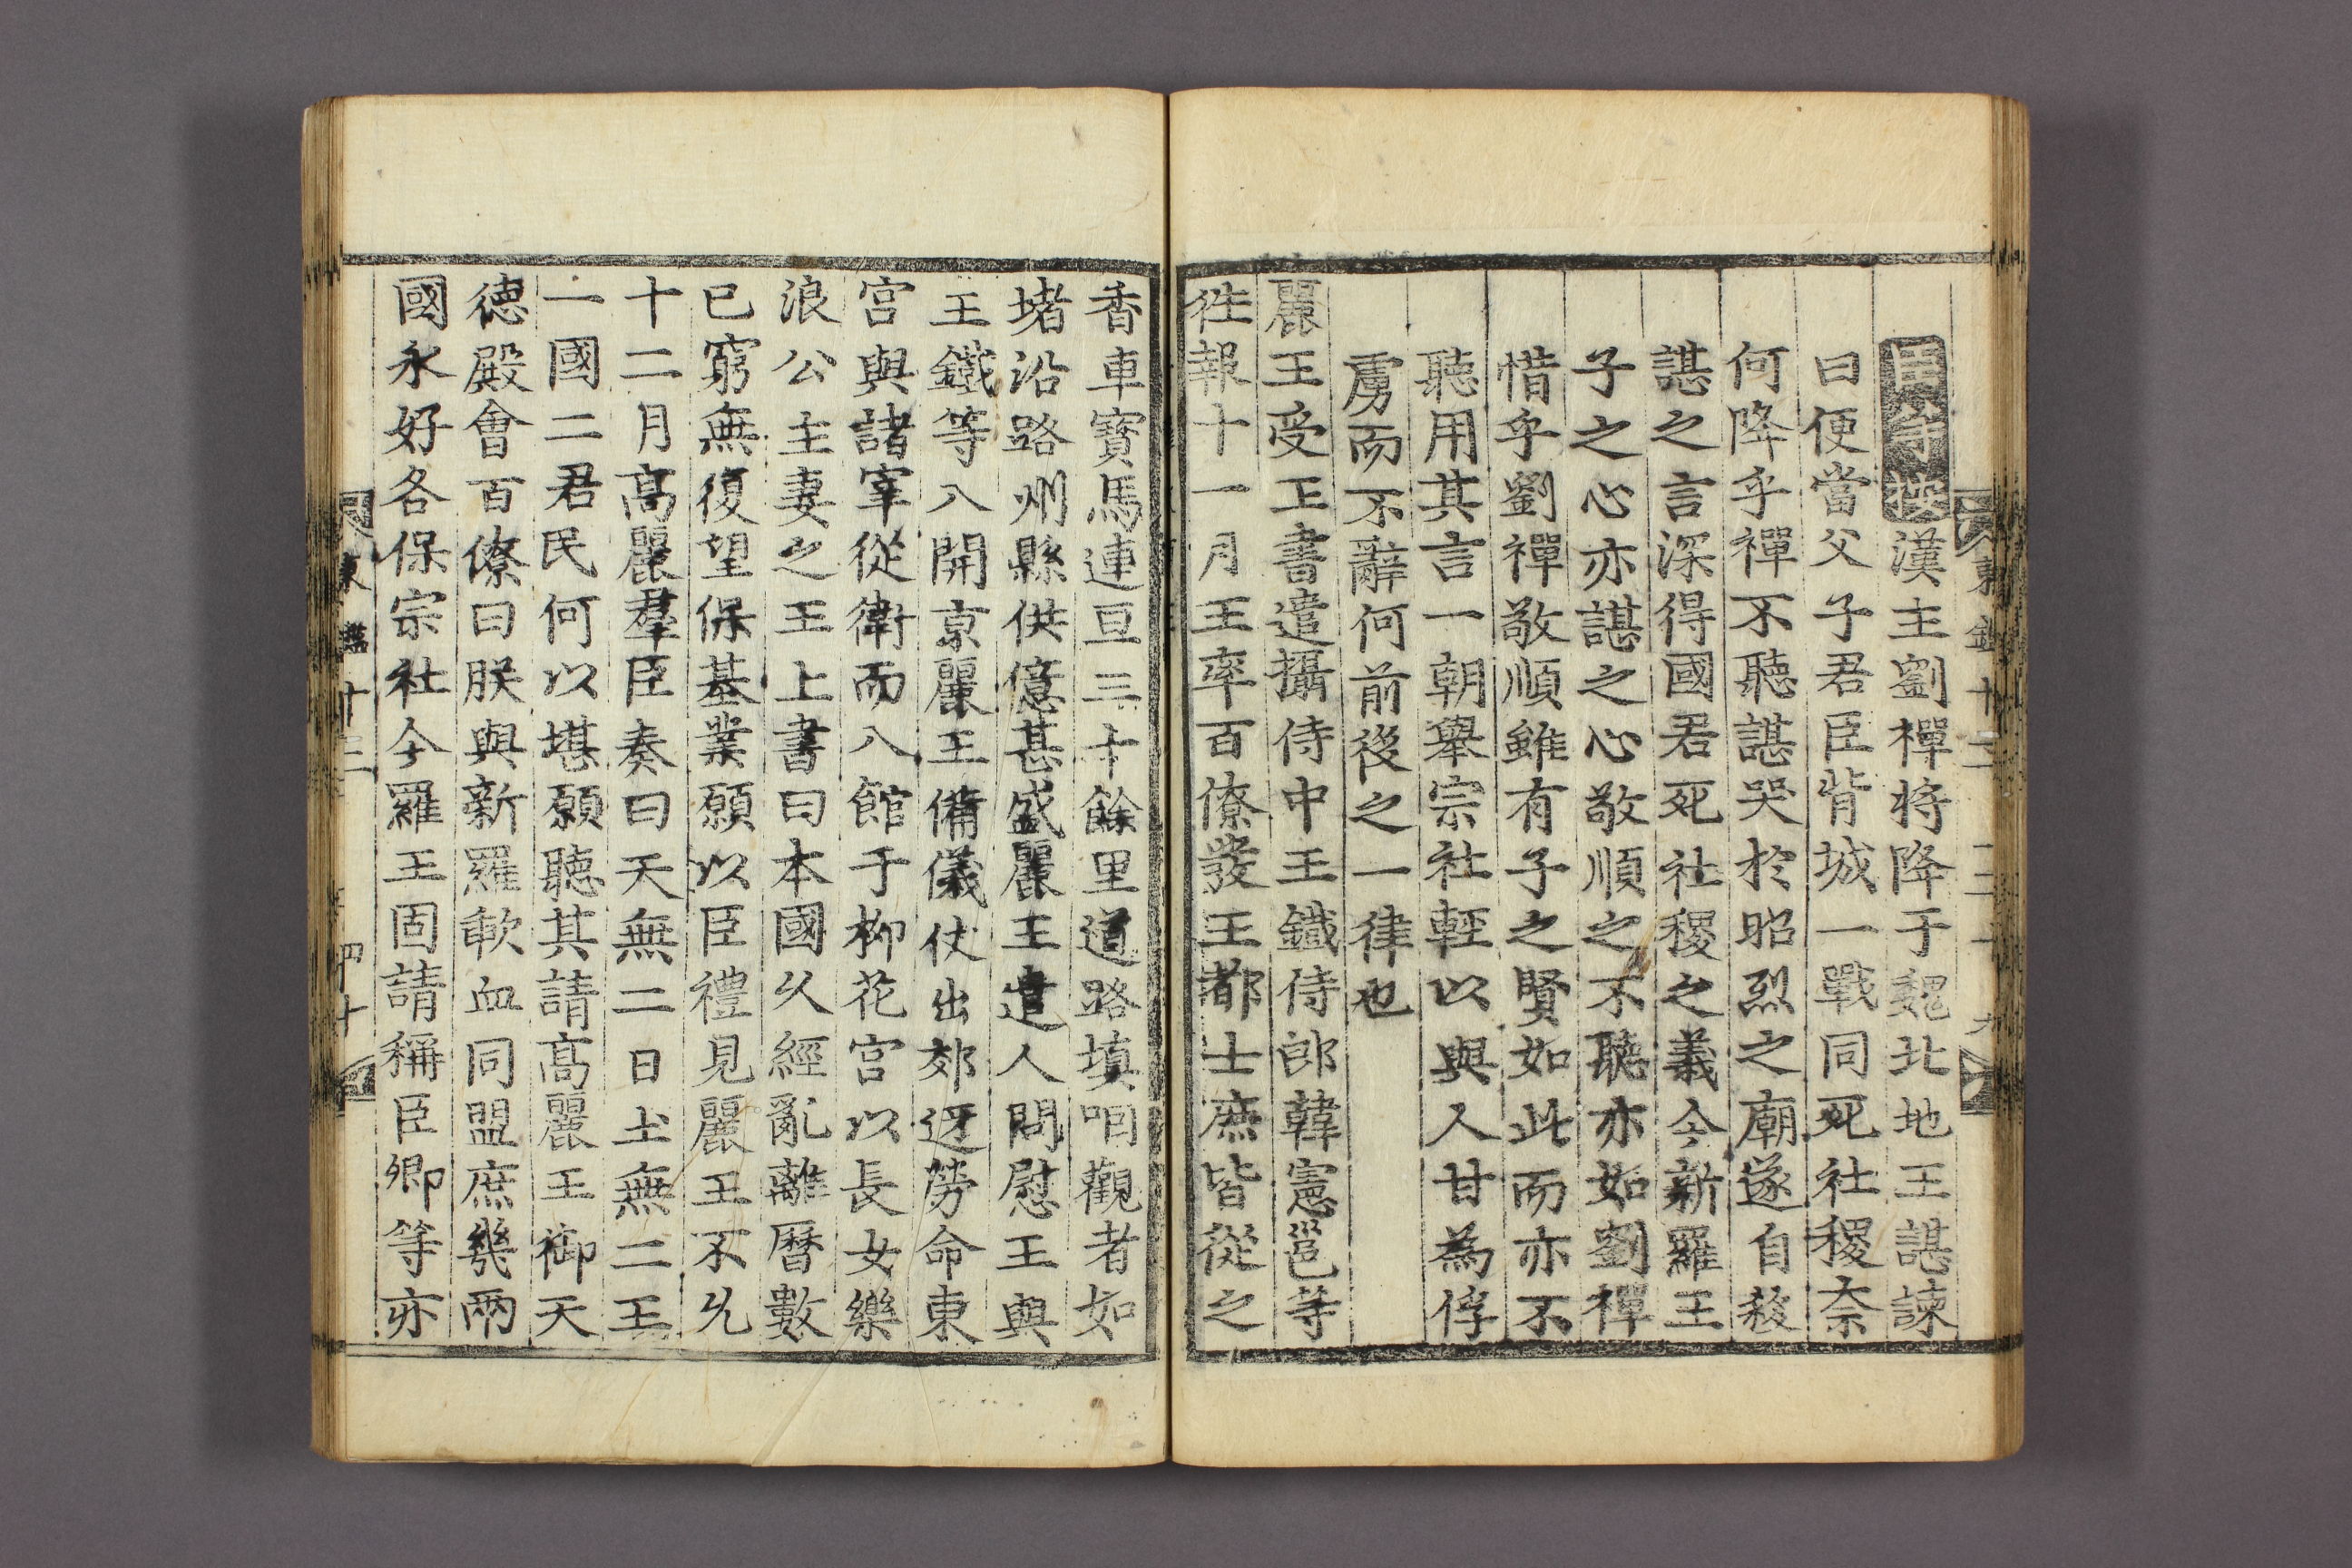 臣等按漢主劉禪將降于魏北地王諶諫
曰便當父子君臣背城一戰同死社稷柰
何降乎禪不聽諶哭於昭烈之廟遂自殺
諶之言深得國君死社稷之義今新羅王
子之心亦諶之心敬順之不聽亦如劉禪
惜乎劉禪敬順雖有子之賢如此而亦不
聽用其言一朝舉宗社輕以與人甘為俘
虜而不辭何前後之一律也
麗王受王書遣攝侍中王鐵侍郎韓憲邕等
徃報十一月王率百僚發王都士庶皆從之
香車寶馬連亘三十餘里道路填咽觀者如
堵沿路州縣供億甚盛麗王遣人問慰王與
王鐵等入開京麗王備儀仗出郊迎勞命東
宮與諸宰從衛而入館于柳花宮以長女樂
浪公主妻之王上書曰本國久經亂離曆數
已窮無復望保基業願以臣禮見麗王不允
十二月高麗羣臣奏曰天無二日土無二王
一國二君民何以堪願聽其請高麗王御天
德殿會百僚曰朕與新羅歃血同盟庶幾兩
國永好各保宗社今羅王固請稱臣卿等亦
東鑑十三 四十